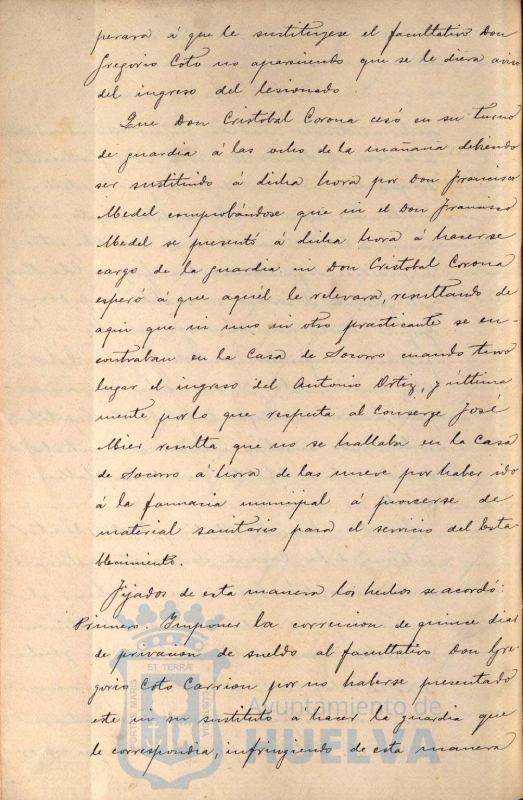 perara á que le sustituyese el facultativo Don
Gregorio Coto no apareciendo que se le diera aviso
del ingreso del lesionado.
Que Don Cristobal Corona cesó en su turno
de guardia á las ocho de la mañana debiendo
ser sustituido á dicha hora por Don Francisco
Medel comprobándose que ni el Don Francisco
Medel se presentó á dicha hora á hacerse
cargo de la guardia ni Don Cristobal Corona
esperó á que aquél le relevara, resultando de
aqui que ni uno ni otro practicante se en-
contraban en la Casa de Socorro cuando tuvo
lugar el ingreso del Antonio Ortiz, y última
mente por lo que respecta al Conserge José
Mier resulta que no se hallaba en la Casa
de Socorro á hora de las nueve por haber ido
á la farmacia municipal á proveerse de
material sanitario para el servicio del Esta-
blecimiento.
Fijados de esta manera los hechos se acordó:
Primero. Imponer la correccion de quince dias
de privacion de sueldo al facultativo Don Gre-
gorio Coto Carrion por no haberse presentado
este ni su sustituto á hacer la guardia que
le correspondia, infringiendo de esta manera
ET TERRÆ
PORTUS MARIS
CUSTODIA
Ayuntamiento de
HUELVA